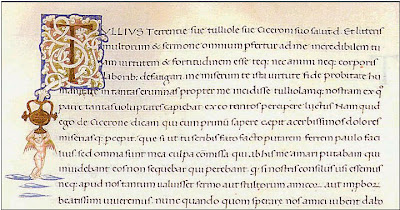 TULLIUS Terentie sue tulliole sue Ciceroni suo salut. d. Et litteris
multorum & sermone omnium pfertur ad me incredibilem tuam
virtutem & fortitudinem esse teq; nec animi neq; corporis
laborib; defatigari. me miserum te ista virtute fide probitate hu
manitate in tantas erumnas propter me incidisse tulliolamq; nostram ex q
patre tantas voluptates capiebat ex eo tantos percipere luctus. Nam quid
ego de Cicerone dicam qui cum primu sapere cepit acerbissimos dolores
miseriasq; pcepit. que si ut tu scribis fato facta putarem ferrem paulo faci
lius sed omnia sunt mea culpa comissa qui ab his me amari putabam qui
invidebant eos non sequebar qui petebant. q si nostris consiliis usi essemus
neq; apud nos tantum valuisset sermo aut stultorum amicor. aut impbor.
beatissimi viveremus. nunc quando quom sperare nos amici iubent dabo